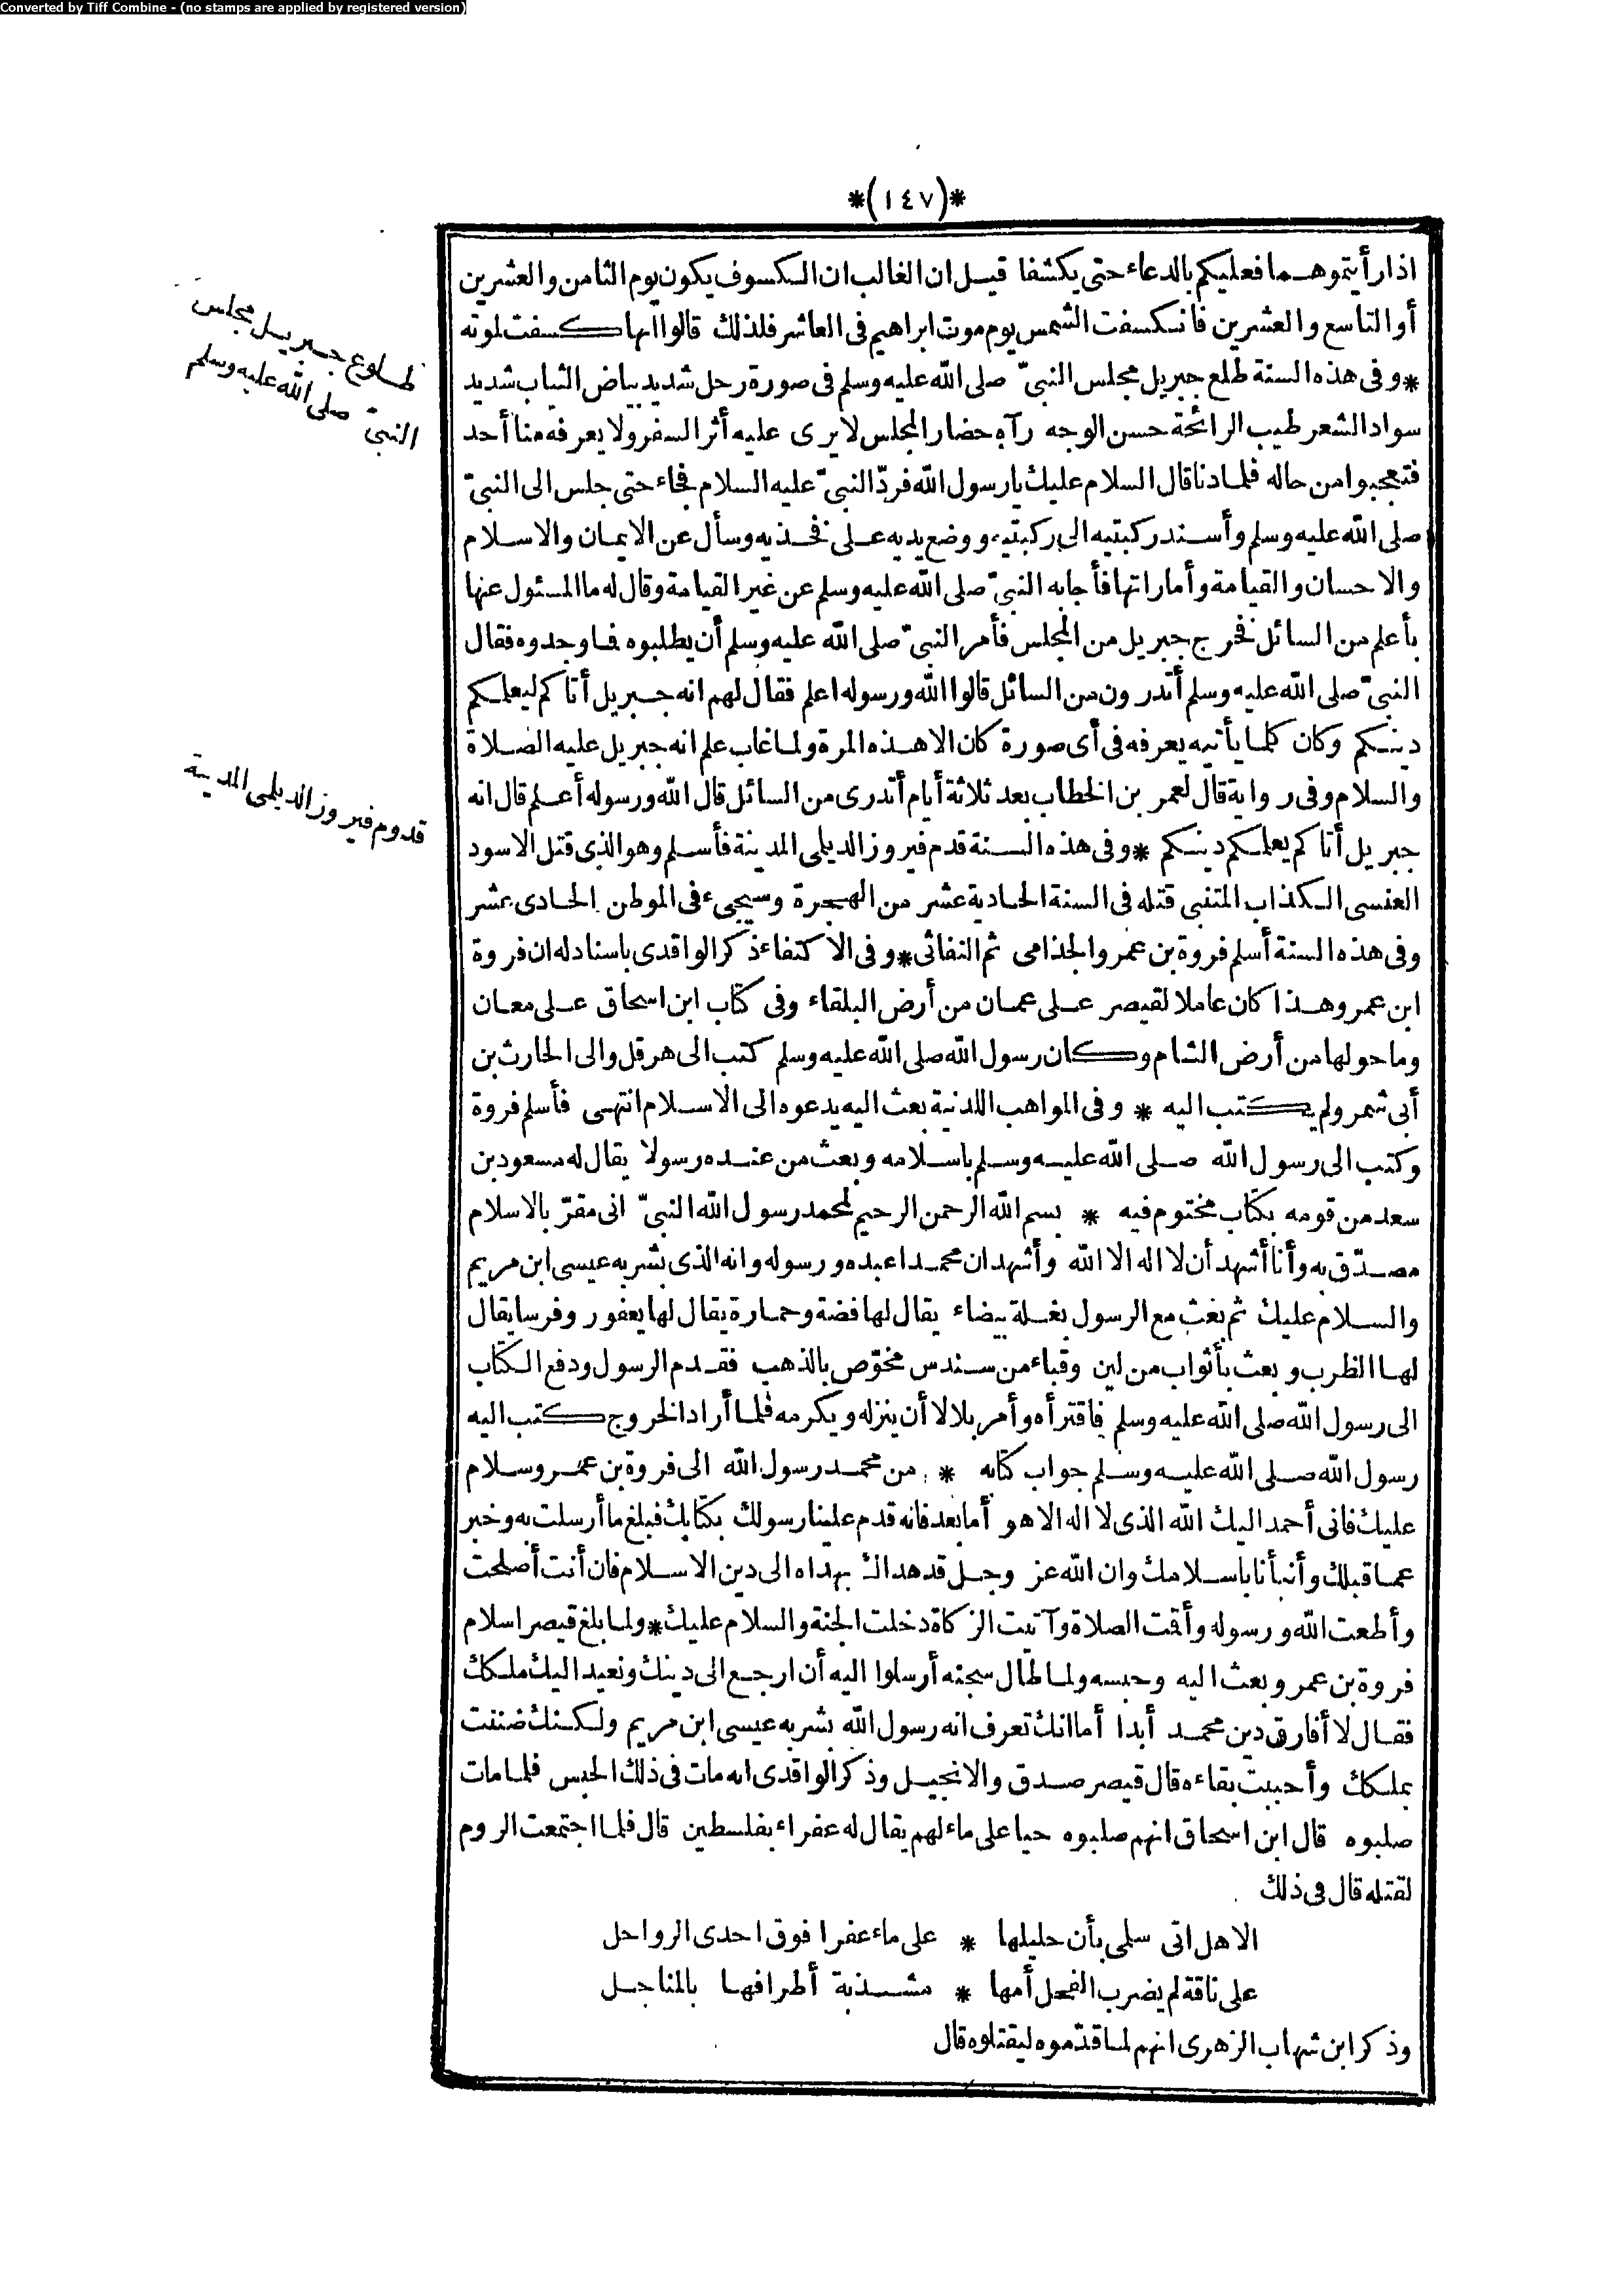 Converted by Tiff Combine - (no stamps are applied by registered version)
*(١٤٧)*
اذا رأيتموهما فعليكم بالدعاء حتى يكشفا قيل ان الغالب ان الكسوف يكون يوم الثامن والعشرين
أو التاسع والعشرين فانكسفت الشمس يوم موت ابراهيم فى العاشر فلذلك قالوا انها كسفت لموته
*وفى هذه السنة طلع جبريل مجلس النبىّ صلى الله عليه وسلم فى صورة رجل شديد بياض الثياب شديد
سواد الشعر طيب الرائحة حسن الوجه رآه حضار المجلس لا يرى عليه أثر السفر ولا يعرفه منا أحد
فتعجبوا من حاله فلما دنا قال السلام عليك يا رسول الله فردّ النبىّ عليه السلام فجاء حتى جلس الى النبىّ
صلى الله عليه وسلم وأسند ركبتيه الى ركبتيه ووضع يديه على فخذيه وسأل عن الايمان والاسلام
والاحسان والقيامة وأماراتها فأجابه النبىّ صلى الله عليه وسلم عن غير القيامة وقال له ما المسئول عنها
بأعلم من السائل فخرج جبريل من المجلس فأمر النبىّ صلى الله عليه وسلم أن يطلبوه فما وجدوه فقال
النبىّ صلى الله عليه وسلم أتدرون من السائل قالوا الله ورسوله اعلم فقال لهم انه جبريل أتاكم ليعلمكم
دينكم وكان كلما يأتيه يعرفه فى أى صورة كان الا هذه المرة ولما غاب علم انه جبريل عليه الصلاة
والسلام وفى رواية قال لعمر بن الخطاب بعد ثلاثة أيام أتدرى من السائل قال الله ورسوله أعلم قال انه
جبريل أتاكم يعلمكم دينكم *وفى هذه السنة قدم فيروز الديلمى المدينة فأسلم وهو الذى قتل الاسود
العنسى الكذاب المتنبى قتله فى السنة الحادية عشر من الهجرة وسيجىء فى الموطن الحادى عشر
وفى هذه السنة أسلم فروة بن عمرو الجذامى ثم النفاثى*وفى الاكتفاء ذكر الواقدى باسناد له ان فروة
ابن عمرو هذا كان عاملا لقيصر على عمان من أرض البلقاء وفى كتاب ابن اسحاق على معان
وما حولها من أرض الشام وكان رسول الله صلى الله عليه وسلم كتب الى هرقل والى الحارث بن
أبى شمر ولم يكتب اليه * وفى المواهب اللدنية بعث اليه يدعوه الى الاسلام انتهى فأسلم فروة
وكتب الى رسول الله صلى الله عليه وسلم باسلامه وبعث من عنده رسولا يقال له مسعود بن
سعد من قومه بكتاب مختوم فيه * بسم الله الرحمن الرحيم لمحمد رسول الله النبىّ انى مقرّ بالاسلام
مصدّق به وأنا أشهد أن لا اله الا الله وأشهد ان محمدا عبده ورسوله وانه الذى بشر به عيسى ابن مريم
والسلام عليك ثم بعث مع الرسول بغلة بيضاء يقال لها فضة وحمارة يقال لها يعفور وفرسا يقال
لها الظرب وبعث بأثواب من لين وقباء من سندس مخوّص بالذهب فقدم الرسول ودفع الكتاب
الى رسول الله صلى الله عليه وسلم فاقترأه وأمر بلالا أن ينزله ويكرمه فلما أراد الخروج كتب اليه
رسول الله صلى الله عليه وسلم جواب كتابه * من محمد رسول الله الى فروة بن عمرو سلام
عليك فانى أحمد اليك الله الذى لا اله الا هو أما بعد فانه قدم علينا رسولك بكتابك فبلغ ما أرسلت به وخبر
عما قبلك وأنبأنا باسلامك وان الله عز وجل قد هداك بهداه الى دين الاسلام فان أنت أصلحت
وأطعت الله ورسوله وأقت الصلاة وآتيت الزكاة دخلت الجنة والسلام عليك*ولما بلغ قيصر اسلام
فروة بن عمر وبعث اليه وحبسه ولما طال سجنه أرسلوا اليه أن ارجع الى دينك ونعيد اليك ملكك
فقال لا أفارق دين محمد أبدا أما انك تعرف انه رسول الله بشر به عيسى ابن مريم ولكنك ضننت
بملكك وأحببت بقاءه قال قيصر صدق والانجيل وذكر الواقدى انه مات فى ذلك الحبس فلما مات
صلبوه قال ابن اسحاق انهم صلبوه حيا على ماء لهم يقال له عفراء بفلسطين قال فلما اجتمعت الروم
لقتله قال فى ذلك
الا هل اتى سلمى بأن حليلها * على ماء عفرا فوق احدى الرواحل
على ناقة لم يضرب الفحل أمها * مشذبة أطرافها بالمناجل
وذكر ابن شهاب الزهرى انهم لما قدّموه ليقتلوه قال
طلوع جبريل مجلس
النبىّ صلى الله عليه وسلم
قدوم فيروز الديلمى المدينة